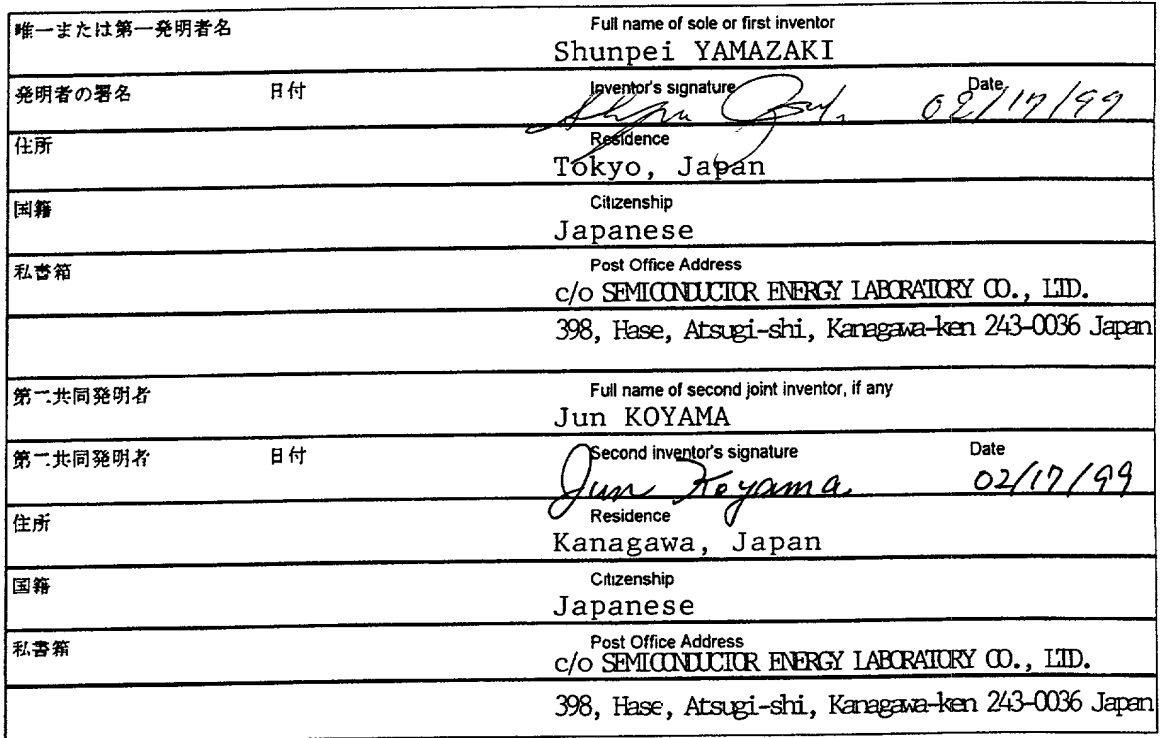 唯一または第一発明者名 Full name of sole or first inventor
Shunpei YAMAZAKI
発明者の署名 日付 Inventor's signature Date
02/17/99
住所 Residence
Tokyo, Japan
国籍 Citizenship
Japanese
私書箱 Post Office Address
c/o SEMICONDUCTOR ENERGY LABORATORY CO., LTD.
398, Hase, Atsugi-shi, Kanagawa-ken 243-0036 Japan
第二共同発明者 Full name of second joint inventor, if any
Jun KOYAMA
第二共同発明者 日付 Second inventor's signature Date
Jun Koyama 02/17/99
住所 Residence
Kanagawa, Japan
国籍 Citizenship
Japanese
私書箱 Post Office Address
c/o SEMICONDUCTOR ENERGY LABORATORY CO., LTD.
398, Hase, Atsugi-shi, Kanagawa-ken 243-0036 Japan